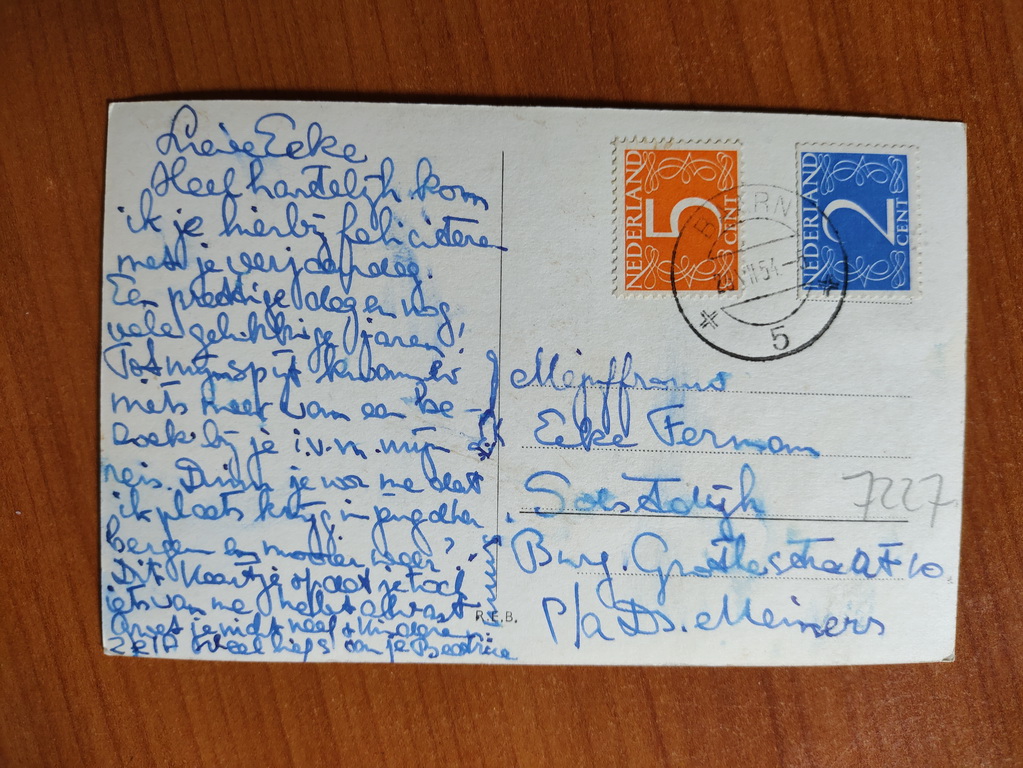 Lieve Eeke
Heel hartelijk kom
ik je hierbij feliciteren
met je verjaardag.
Een prettige dag en nog
vele gelukkige jaren!
Tot mijn spijt kwam er
niets meer van een be-
zoek bij je i.v.m. mijn
reis. Duim je voor me dat
ik plaats krijg in jeugdher
bergen en mooier weer?
Dit kaartje spaar je toch
iets van me hebt
Groet je
Heel liefs van je Beatrice
R.E.B.
NEDERLAND
5
CENT
NEDERLAND
2
CENT
BAARN
54
5
Mejuffrouw
Eeke Fermans
Soestdijk
7227
Burg. Grothestraat 10
P/a Ds. Meiners